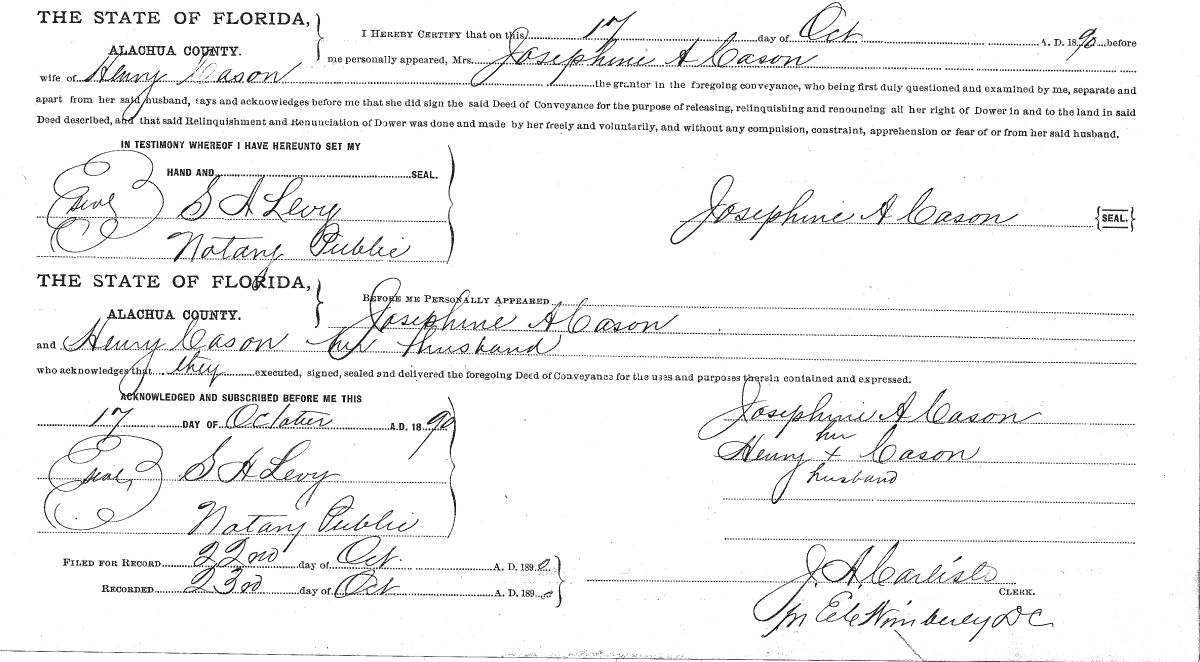 THE STATE OF FLORIDA, I HEREBY CERTIFY that on this 17 day of Oct A. D. 1890 before
ALACHUA COUNTY. me personally appeared, Mrs. Josephine A Cason
wife of Henry Cason the grantor in the foregoing conveyance, who being first duly questioned and examined by me, separate and
apart from her said husband, says and acknowledges before me that she did sign the said Deed of Conveyance for the purpose of releasing, relinquishing and renouncing all her right of Dower in and to the land in said
Deed described, and that said Relinquishment and Renunciation of Dower was done and made by her freely and voluntarily, and without any compulsion, constraint, apprehension or fear of or from her said husband.
IN TESTIMONY WHEREOF I HAVE HEREUNTO SET MY
HAND AND SEAL.
Seal S A Levy Josephine A Cason {SEAL.}
Notary Public
THE STATE OF FLORIDA, BEFORE ME PERSONALLY APPEARED
ALACHUA COUNTY. Josephine A Cason
and Henry Cason her husband
who acknowledges that they executed, signed, sealed and delivered the foregoing Deed of Conveyance for the uses and purposes therein contained and expressed.
ACKNOWLEDGED AND SUBSCRIBED BEFORE ME THIS
17 DAY OF October A.D. 1890 Josephine A Cason
her
Henry x Cason
husband
Seal S A Levy
Notary Public
FILED FOR RECORD 22nd day of Oct. A. D. 1890
RECORDED 23rd day of Oct A. D. 189
J. A. Carlisle
CLERK.
Wimberly DC